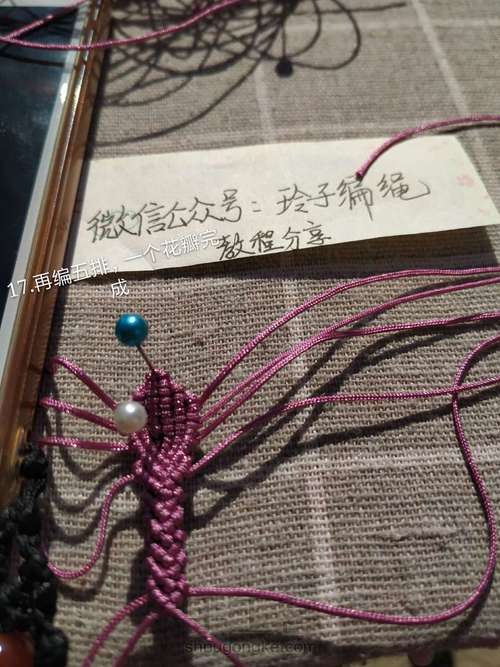 微信公众号：玲子编绳
教程分享
17.再编五排，一个花瓣完
成
shougongke.com